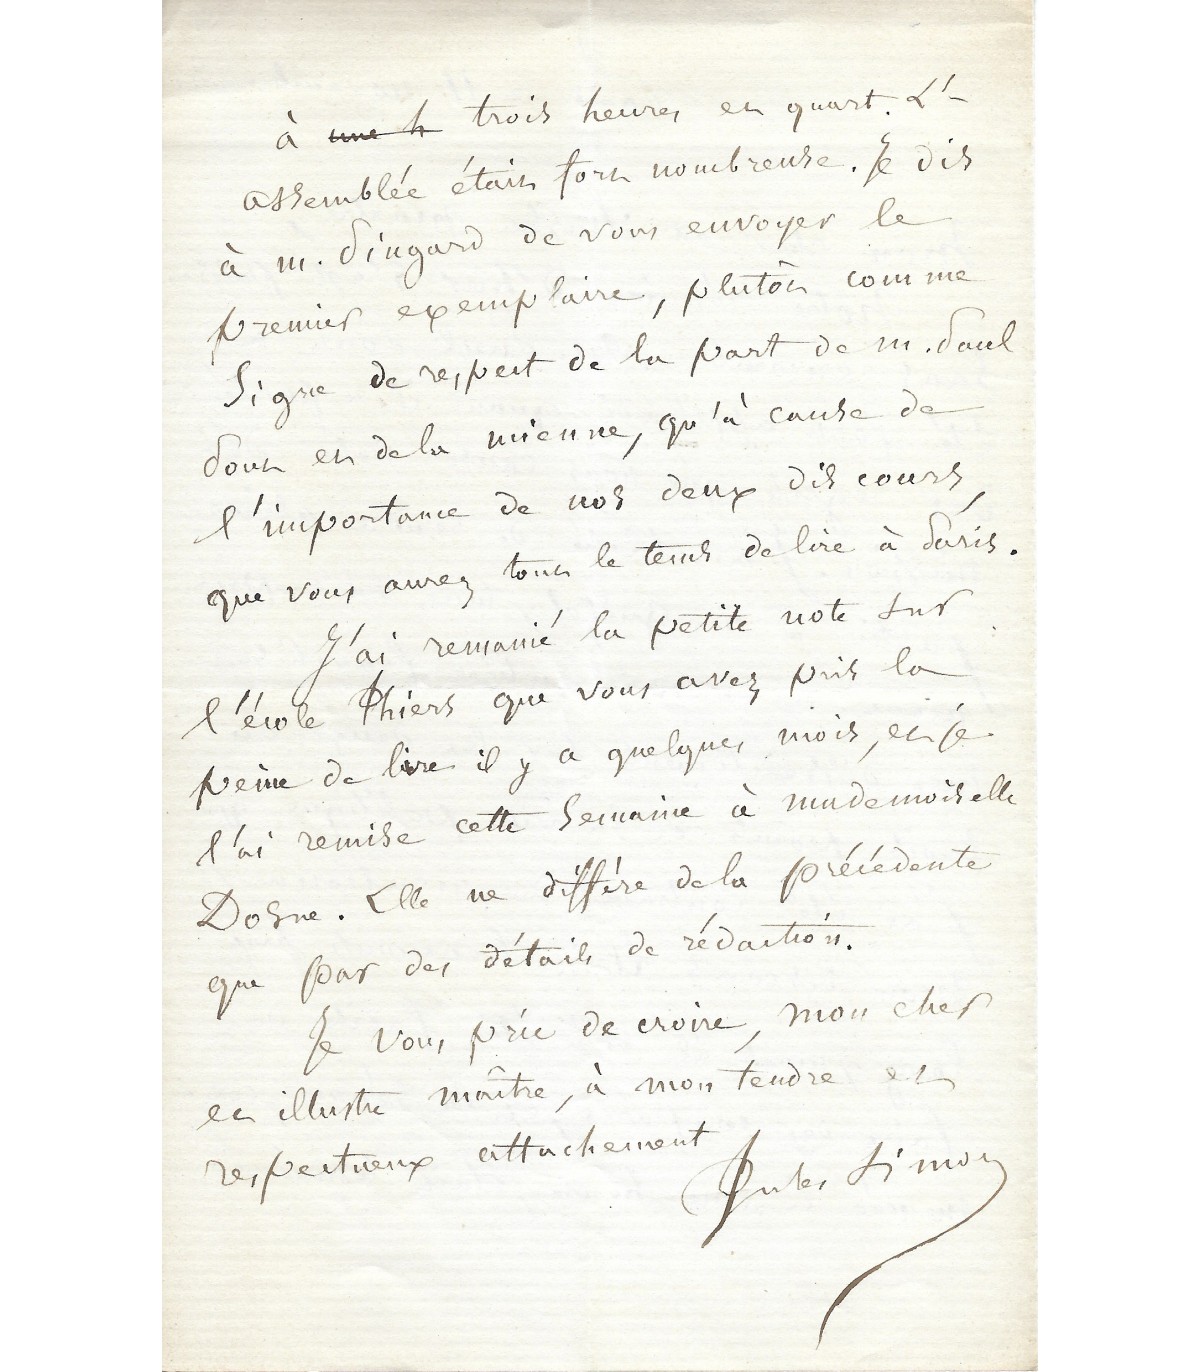 à ~~une h~~ trois heures et quart. L'-
assemblée était fort nombreuse. Je dis
à m. Pingard de vous envoyer le
premier exemplaire, plutôt comme
signe de respect de la part de m. Paul
Pont et de la mienne, qu'à cause de
l'importance de nos deux discours,
que vous aurez tout le tems de lire à Paris.
J'ai remanié la petite note sur
l'école Thiers que vous avez pris la
peine de lire il y a quelques mois, et je
l'ai remise cette semaine à mademoiselle
Dosne. Elle ne diffère de la précédente
que par des détails de rédaction.
Je vous prie de croire, mon cher
et illustre maître, à mon tendre et
respectueux attachement
Jules Simon